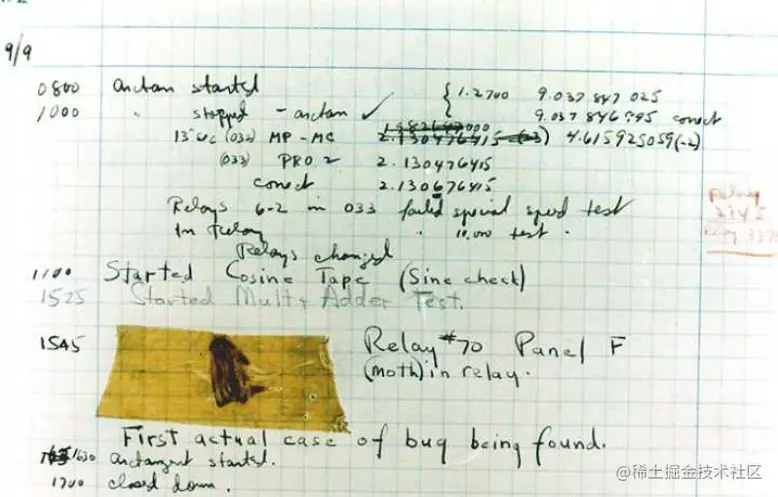 9/9
0800 arctan started
1000 " stopped - arctan ✓
{ 1.2700 9.037 847 025
9.037 846 795 correct
13"uc (032) MP-MC 2.130476415 (-3) 4.615925059(-2)
(033) PRO 2 2.130476415
correct 2.130676415
Relays 6-2 in 033 failed special speed test
In Relay " 10,000 test .
Relays changed
Relay
2145
Relay 3370
1100 Started Cosine Tape (Sine check)
1525 Started Mult + Adder Test.
1545 Relay #70 Panel F
(moth) in relay.
First actual case of bug being found.
1630 arctangent started.
1700 closed down.
@稀土掘金技术社区